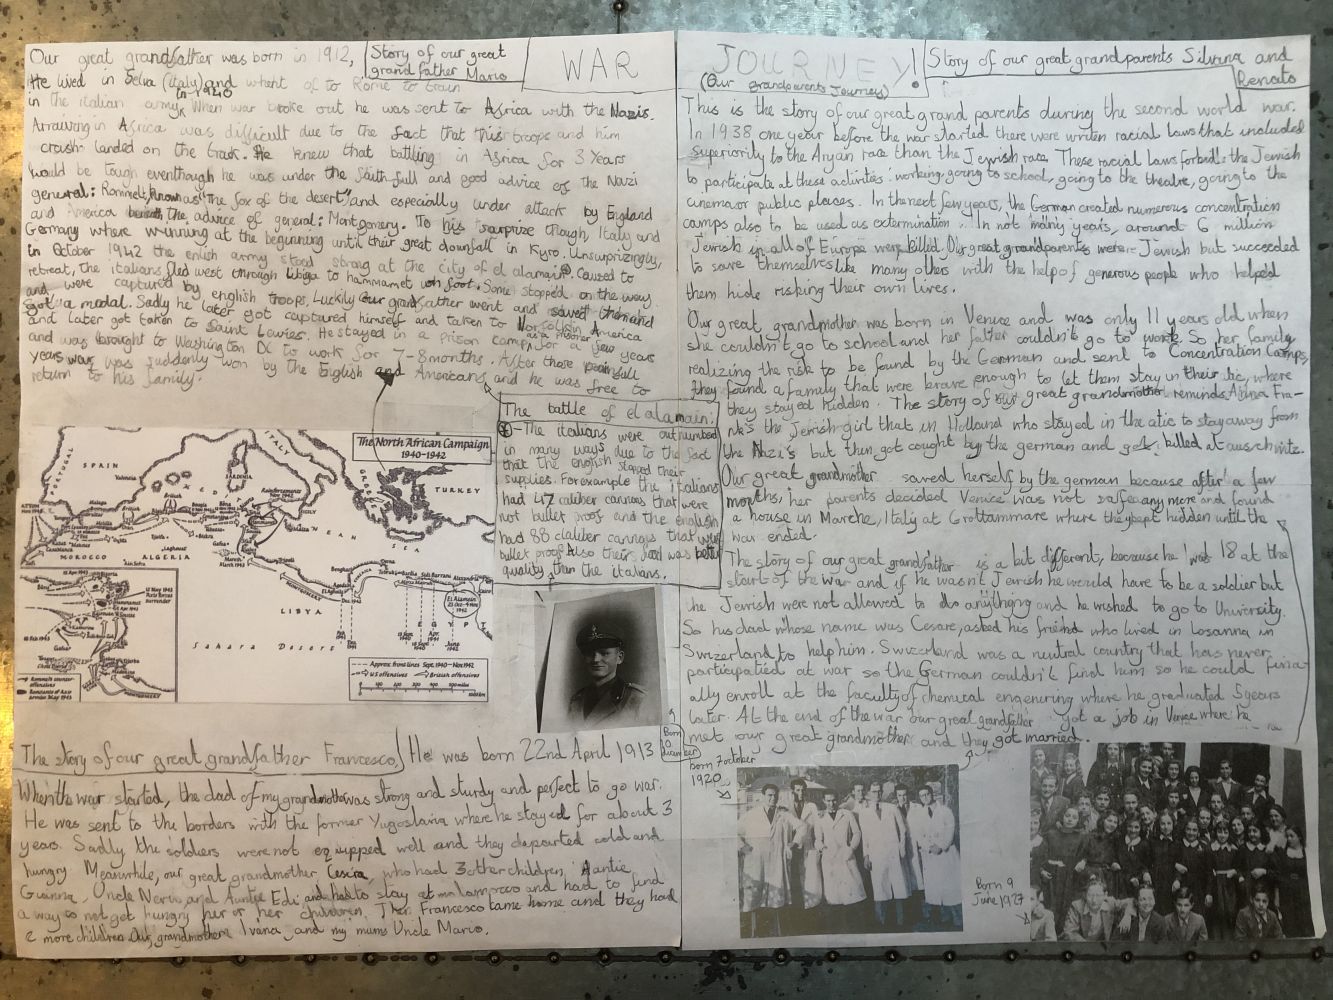 Our great grandfather was born in 1912,
Story of our great
grand father Mario
WAR
He lived in Selva (italy) and whent of to Rome to train
in 1940
in the italian army. When war broke out he was sent to Africa with the Nazis.
Arraiving in Africa was difficult due to the fact that this troops and him
crash landed on the track. He knew that battling in Africa for 3 Years
would be tough eventhough he was under the faithfull and good advice of the Nazi
general: Rommel, known as "The fox of the desert", and especially under attack by England
and America the advice of general: Montgomery. To his surprize though, Italy and
Germany where winning at the beginning until their great downfall in Kyro. Unsurprizingly,
in October 1942 the enlish army stood strong at the city of el alamain. Caused to
retreat, the italians fled west through Libiga to hammamet on foot. Some stopped on the way
and were captured by english troops, Luckily our grandfather went and saved them and
got a medal. Sadly he later got captured himself and taken to Norfolk in America
and later got taken to Saint Lewies. He stayed in a prison camp for a few years
and was brought to Washington DC to work for 7-8 months. After those painfull
years war was suddenly won by the English and Americans and he was free to
return to his family.
The battle of el alamain:
-The italians were outnumbed
in many ways due to the fact
that the english stopped their
supplies. For example the italians
had 47 caliber cannons that were
not bullet proof and the english
had 88 claliber cannons that were
bullet proof. Also their food was better
quality than the italians.
The North African Campaign
1940-1942
PORTUGAL
SPAIN
ITALY
SARDINIA
SICILY
TURKEY
Valencia
MOROCCO
ALGERIA
Casablanca
LIBYA
EGYPT
Sahara Desert
Benghazi
Tobruk
Bardia
Sidi Barrani
Alexandria
El Alamein
Approx. front lines Sept. 1940-Nov 1942
US offensives
British offensives
Rommel's counter-
offensives
The story of our great grandfather Francesco,
He was born 22nd April 1913
When the war started, the dad of my grandmother was strong and sturdy and perfect to go war.
He was sent to the borders with the former Yugoslavia where he stayed for about 3
years. Sadly the soldiers were not equipped well and they departed cold and
hungry. Meanwhile, our great grandmother Cesira, who had 3 other children, Auntie
Gianna, Uncle Nervio, and Auntie Edi and had to stay at malamocco and had to find
a way to not get hungry fur or her children. Then Francesco came home and they had
2 more children Our grandmother Ivana and my mums Uncle Mario.
JOURNEY!
(Our grandparents Journey)
Story of our great grandparents Silvana and
Renato
This is the story of our great grand parents during the second world war.
In 1938 one year before the war started there were writen racial laws that included
superiority to the Aryan race than the Jewish race. These racial laws forbid the Jewish
to participate at these activities: working, going to school, going to the theatre, going to the
cinema or public places. In the next few years, the German created numerous concentration
camps also to be used as extermination. In not many years, around 6 million
Jewish in all of Europe were killed. Our great grandparents were Jewish but succeeded
to save themselves like many others with the help of generous people who helped
them hide risking their own lives.
Our great grandmother was born in Venice and was only 11 years old when
she couldn't go to school and her father couldn't go to work. So her family
realizing the risk to be found by the German and sent to Concentration Camps,
they found a family that were brave enough to let them stay in their atic, where
they stayed hidden. The story of our great grandmother reminds Anna Fra-
nk's the Jewish girl that in Holland who stayed in the atic to stay away from
the Nazi's but then got cought by the german and got killed at auschwitz.
Our great grandmother saved herself by the german because after a few
months, her parents decided Venice was not safe any more and found
a house in Marche, Italy at Grottammare where they kept hidden until the
war ended.
The story of our great grandfather is a bit different, because he was 18 at the
start of the war and if he wasn't Jewish he would have to be a soldier but
the Jewish were not allowed to do anything and he wished to go to University.
So his dad whose name was Cesare, asked his friend who lived in Losanna in
Swizerland to help him. Swizerland was a neutral country that has never
participatied at war so the German couldn't find him so he could fina-
ally enroll at the faculty of chemical engenering where he graduated 5 years
later. At the end of the war our great grandfather got a job in Venice where he
met our great grandmother and they got married.
Born 7 october
1920
Born 9
June 1927